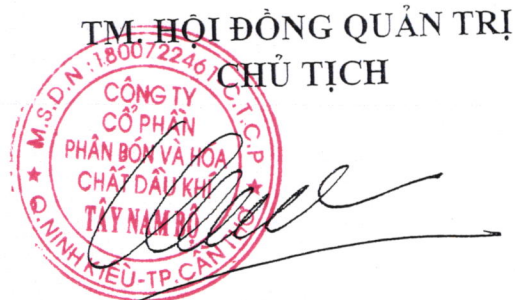 TM. HỘI ĐỒNG QUẢN TRỊ
CHỦ TỊCH
M.S.D.N:1800722461-C.T.C.P
CÔNG TY
CỔ PHẦN
PHÂN BÓN VÀ HÓA
CHẤT DẦU KHÍ
TÂY NAM BỘ
Q.NINH KIỀU-TP.CẦN